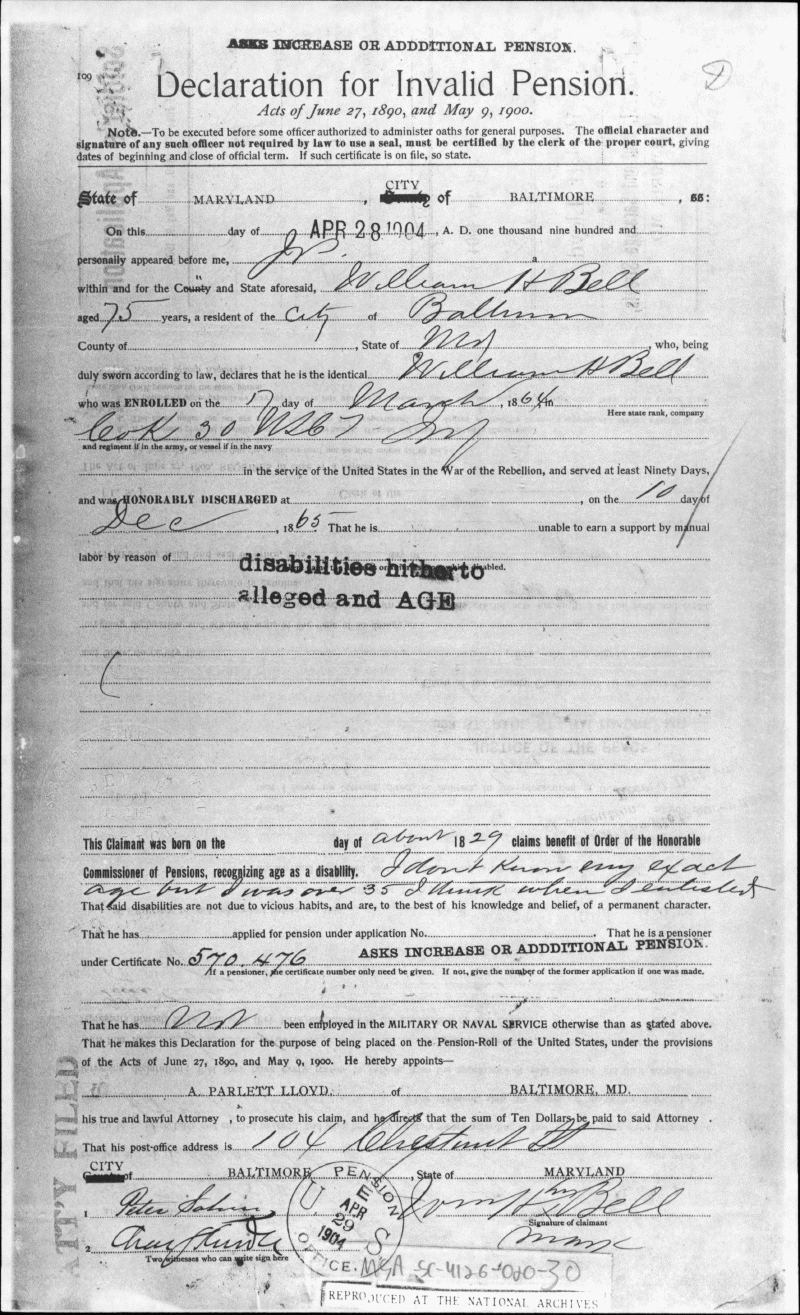 ASKS INCREASE OR ADDDITIONAL PENSION.
109
Declaration for Invalid Pension.
Acts of June 27, 1890, and May 9, 1900.
Note.—To be executed before some officer authorized to administer oaths for general purposes. The official character and
signature of any such officer not required by law to use a seal, must be certified by the clerk of the proper court, giving
dates of beginning and close of official term. If such certificate is on file, so state.
CITY
State of MARYLAND, County of BALTIMORE, ss:
On this day of APR 28 1904, A. D. one thousand nine hundred and
personally appeared before me, J.P. a
within and for the County and State aforesaid, William H Bell
aged 75 years, a resident of the City of
County of, State of Md, who, being
duly sworn according to law, declares that he is the identical William H Bell
who was ENROLLED on the 17 day of March, 1864, in
Here state rank, company
Co K 30 USCT Inf
and regiment if in the army, or vessel if in the navy
in the service of the United States in the War of the Rebellion, and served at least Ninety Days,
and was HONORABLY DISCHARGED at, on the 10 day of
Dec, 1865 That he is unable to earn a support by manual
labor by reason of disabilities hitherto
alleged and AGE
This Claimant was born on the day of about 1829 claims benefit of Order of the Honorable
Commissioner of Pensions, recognizing age as a disability. I dont know my exact
age but I was over 35 I think when I enlisted
That said disabilities are not due to vicious habits, and are, to the best of his knowledge and belief, of a permanent character.
That he has applied for pension under application No. That he is a pensioner
under Certificate No. 570.476 ASKS INCREASE OR ADDDITIONAL PENSION.
If a pensioner, the certificate number only need be given. If not, give the number of the former application if one was made.
That he has Not been employed in the MILITARY OR NAVAL SERVICE otherwise than as stated above.
That he makes this Declaration for the purpose of being placed on the Pension-Roll of the United States, under the provisions
of the Acts of June 27, 1890, and May 9, 1900. He hereby appoints—
A. PARLETT LLOYD, of BALTIMORE, MD.
his true and lawful Attorney , to prosecute his claim, and he directs that the sum of Ten Dollars be paid to said Attorney .
That his post-office address is 104 Chestnut St
CITY
County of BALTIMORE, State of MARYLAND
1 Peter
Wm H Bell
Signature of claimant
mark
2
Two witnesses who can write sign here
U. S. PENSION OFFICE.
APR
29
1904
ATT'Y FILED
MSA SC-4126-020-30
REPRODUCED AT THE NATIONAL ARCHIVES